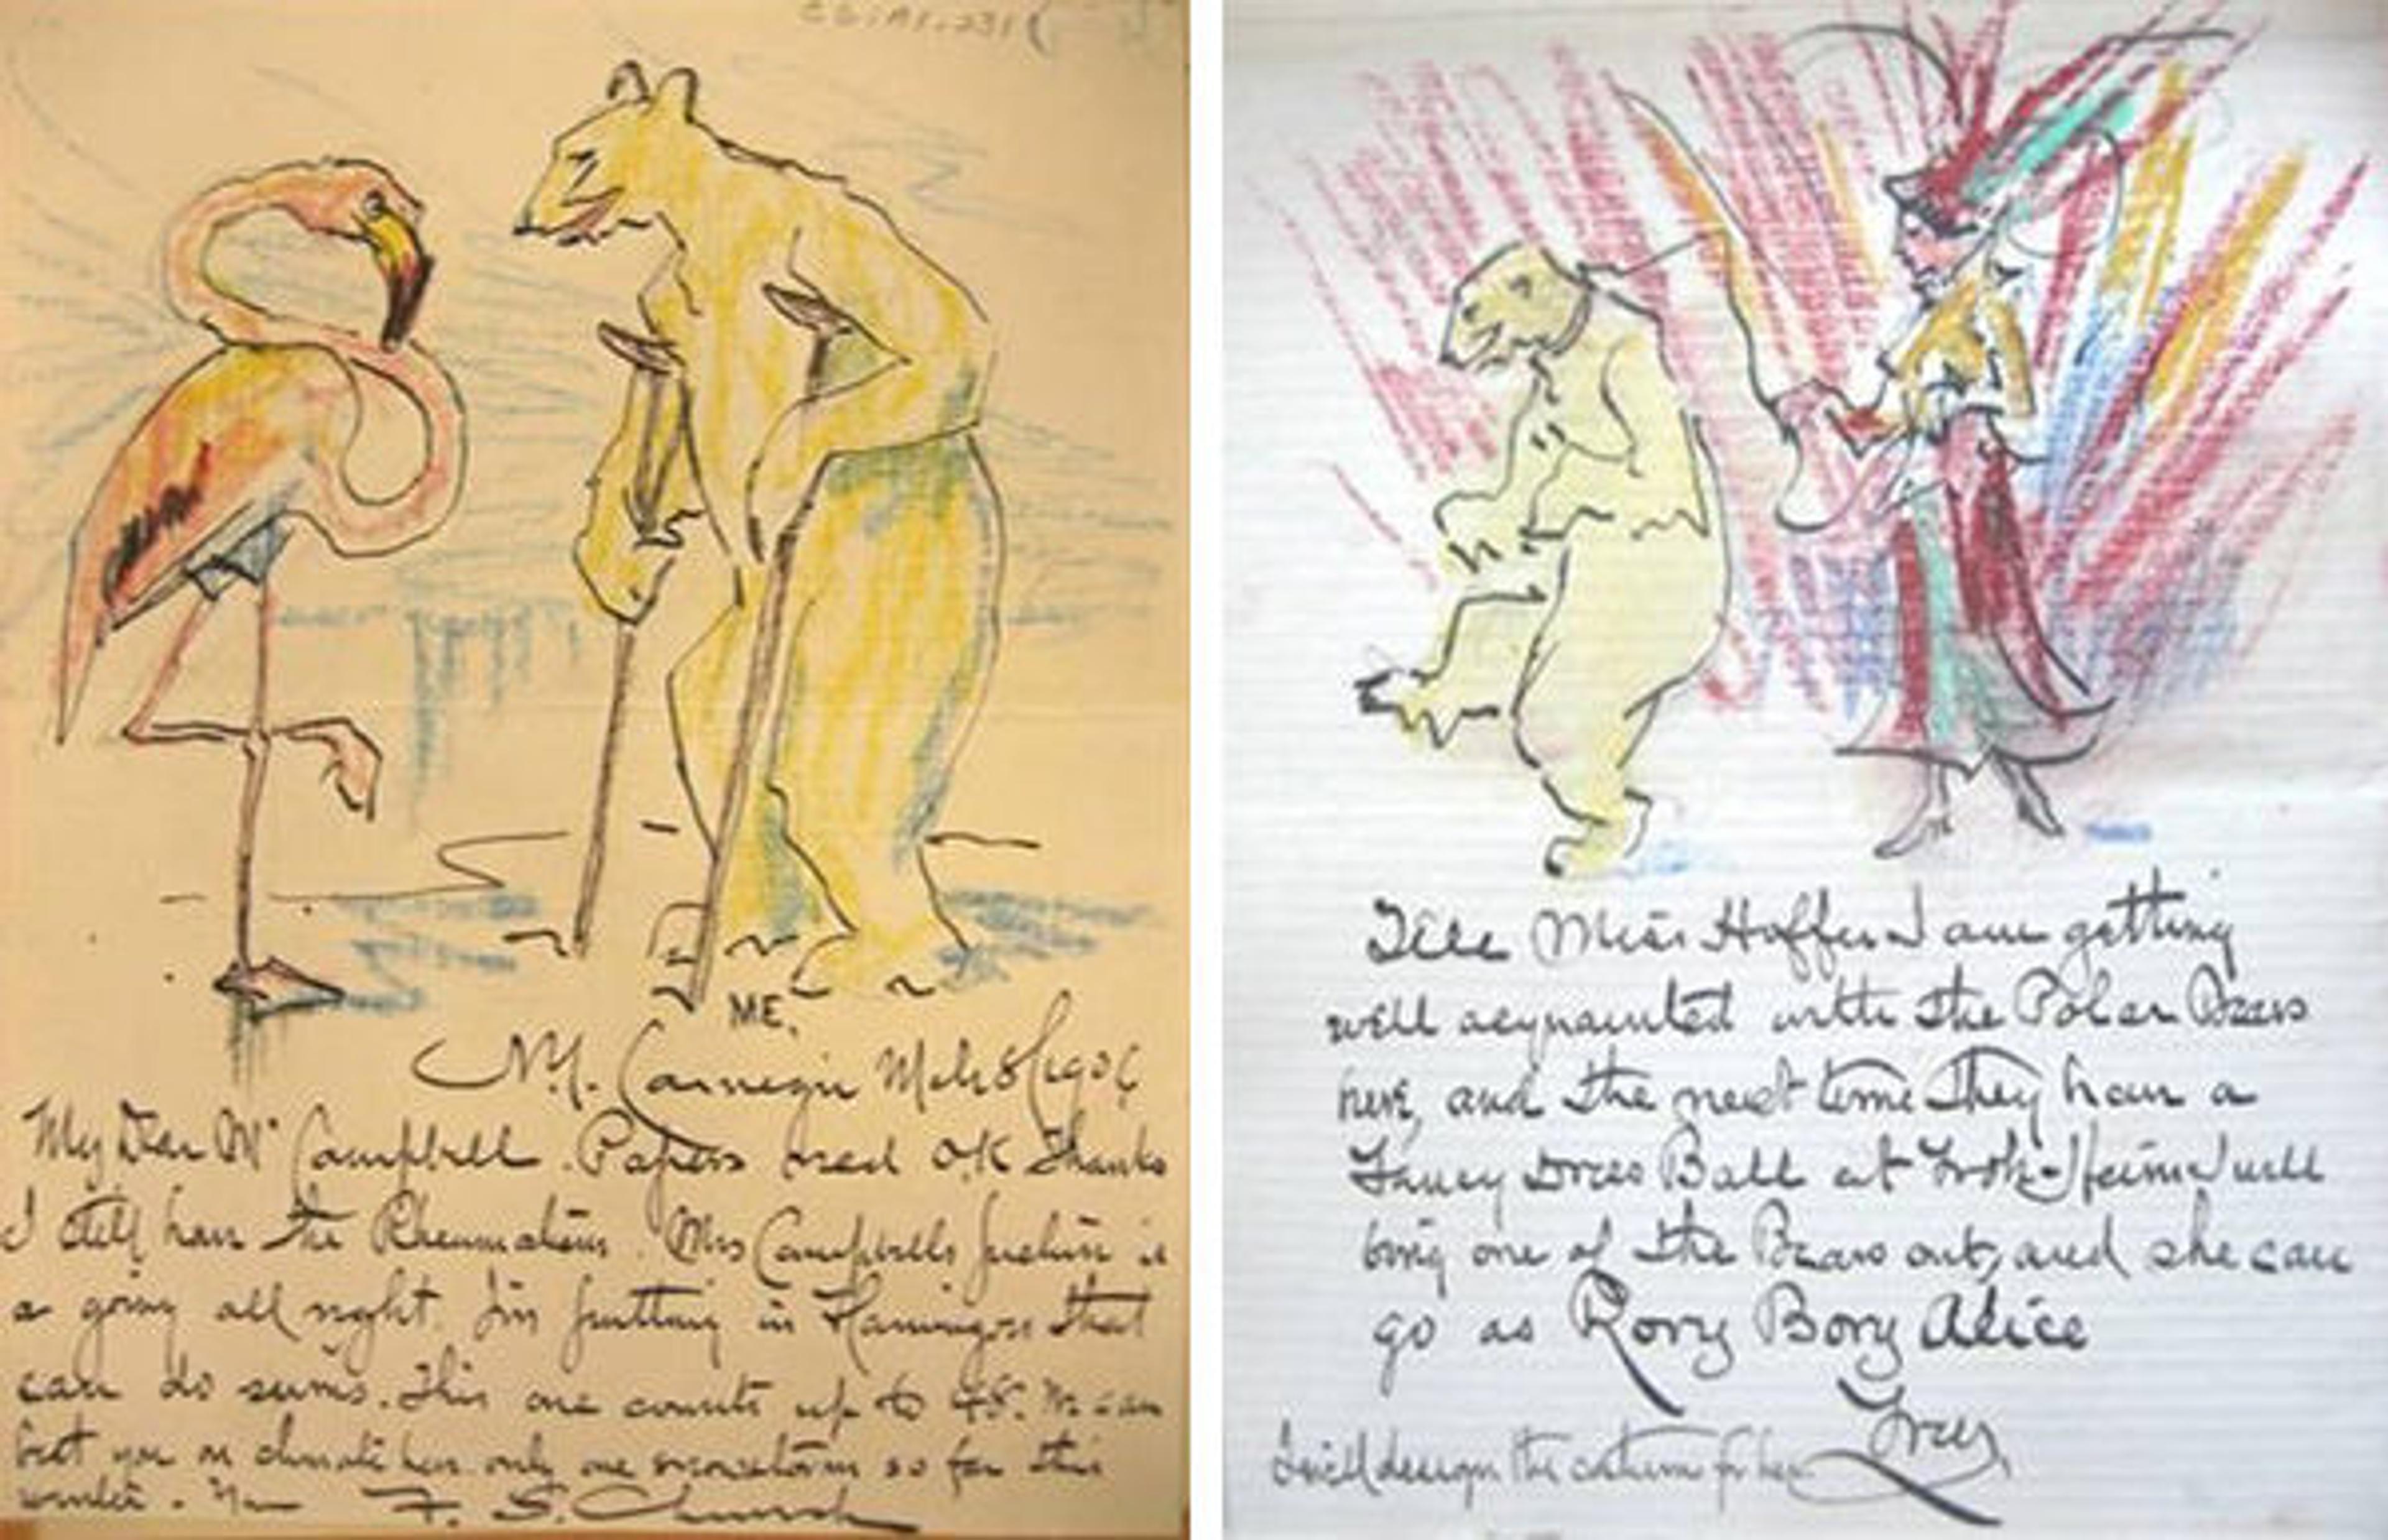 ME.
N.Y. Carnegie Mch 8/1906
My Dear Mr Campbell. Papers recd O.K thanks
I still have the Rheumatism. Mrs Campbells picture is
a going all right. I'm putting in Flamingoes that
can do sums. This one counts up to 48. We can
beat you on climate have only one snowstorm so far this
winter. F. S. Church
Tell Miss Hoffer I am getting
well acquainted with the Polar Bears
here, and the next time they have a
Fancy Dress Ball at I will
bring one of the Bears out, and she can
go as Rory Bory Alice
I will design the costume for her